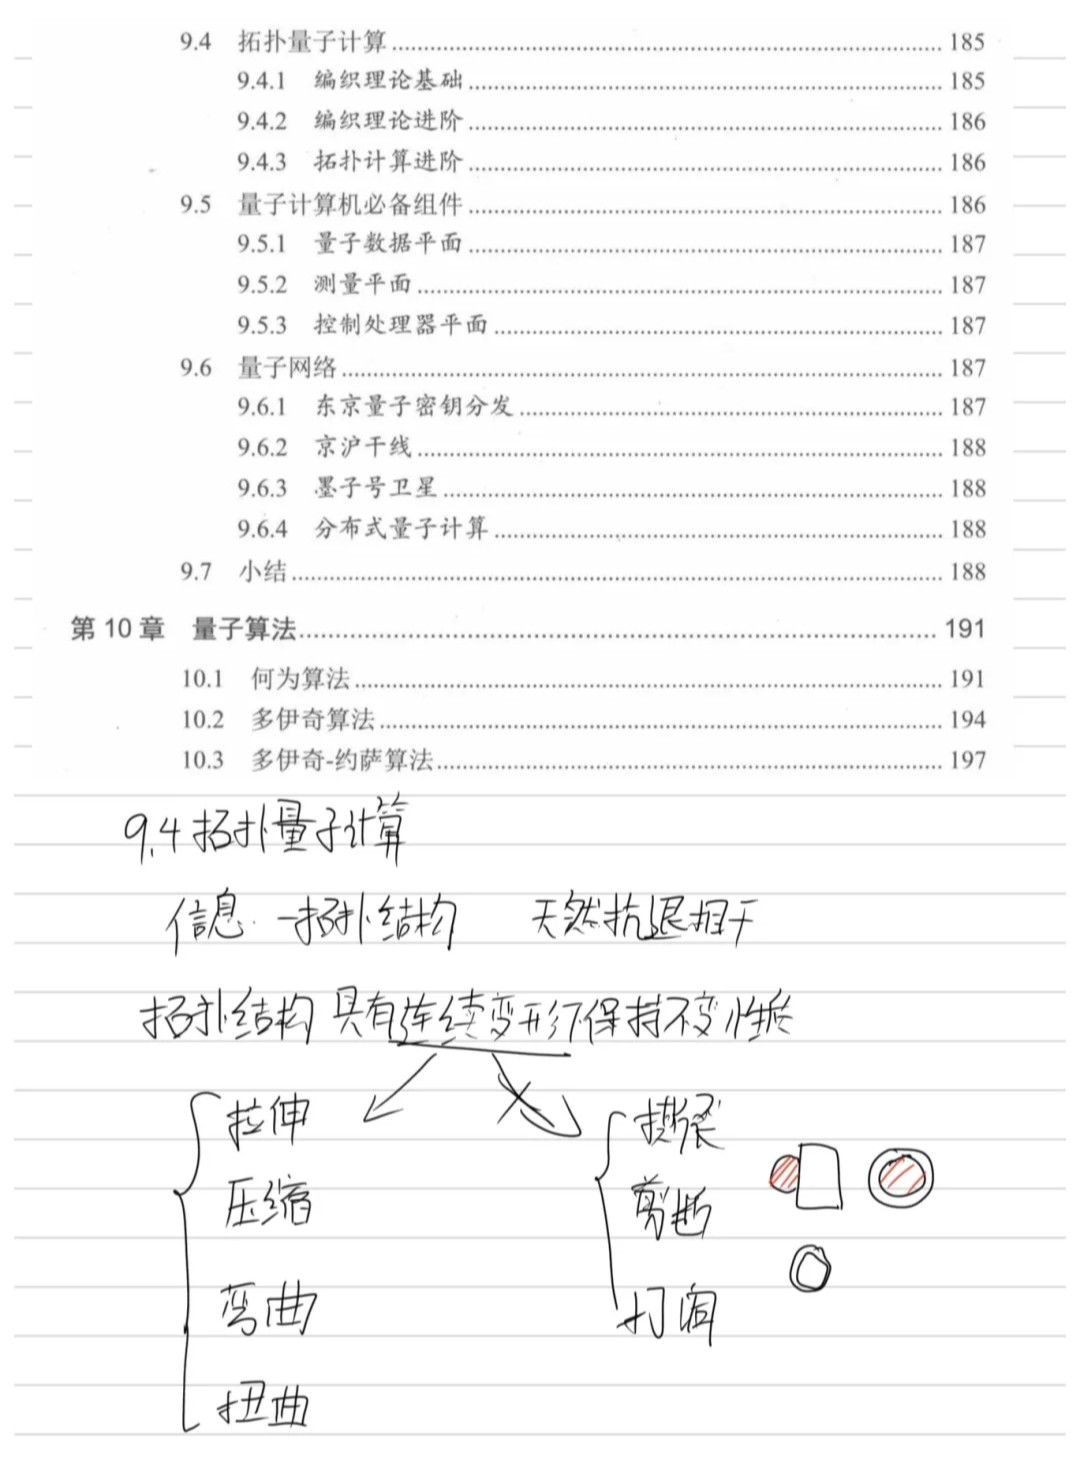 9.4 拓扑量子计算 185
9.4.1 编织理论基础 185
9.4.2 编织理论进阶 186
9.4.3 拓扑计算进阶 186
9.5 量子计算机必备组件 186
9.5.1 量子数据平面 187
9.5.2 测量平面 187
9.5.3 控制处理器平面 187
9.6 量子网络 187
9.6.1 东京量子密钥分发 187
9.6.2 京沪干线 188
9.6.3 墨子号卫星 188
9.6.4 分布式量子计算 188
9.7 小结 188
第 10 章 量子算法 191
10.1 何为算法 191
10.2 多伊奇算法 194
10.3 多伊奇-约萨算法 197
9.4 拓扑量子计算
信息 - 拓扑结构 天然抗退相干
拓扑结构具有连续变形下保持不变性质
拉伸 撕裂
压缩 剪断
弯曲 打洞
扭曲